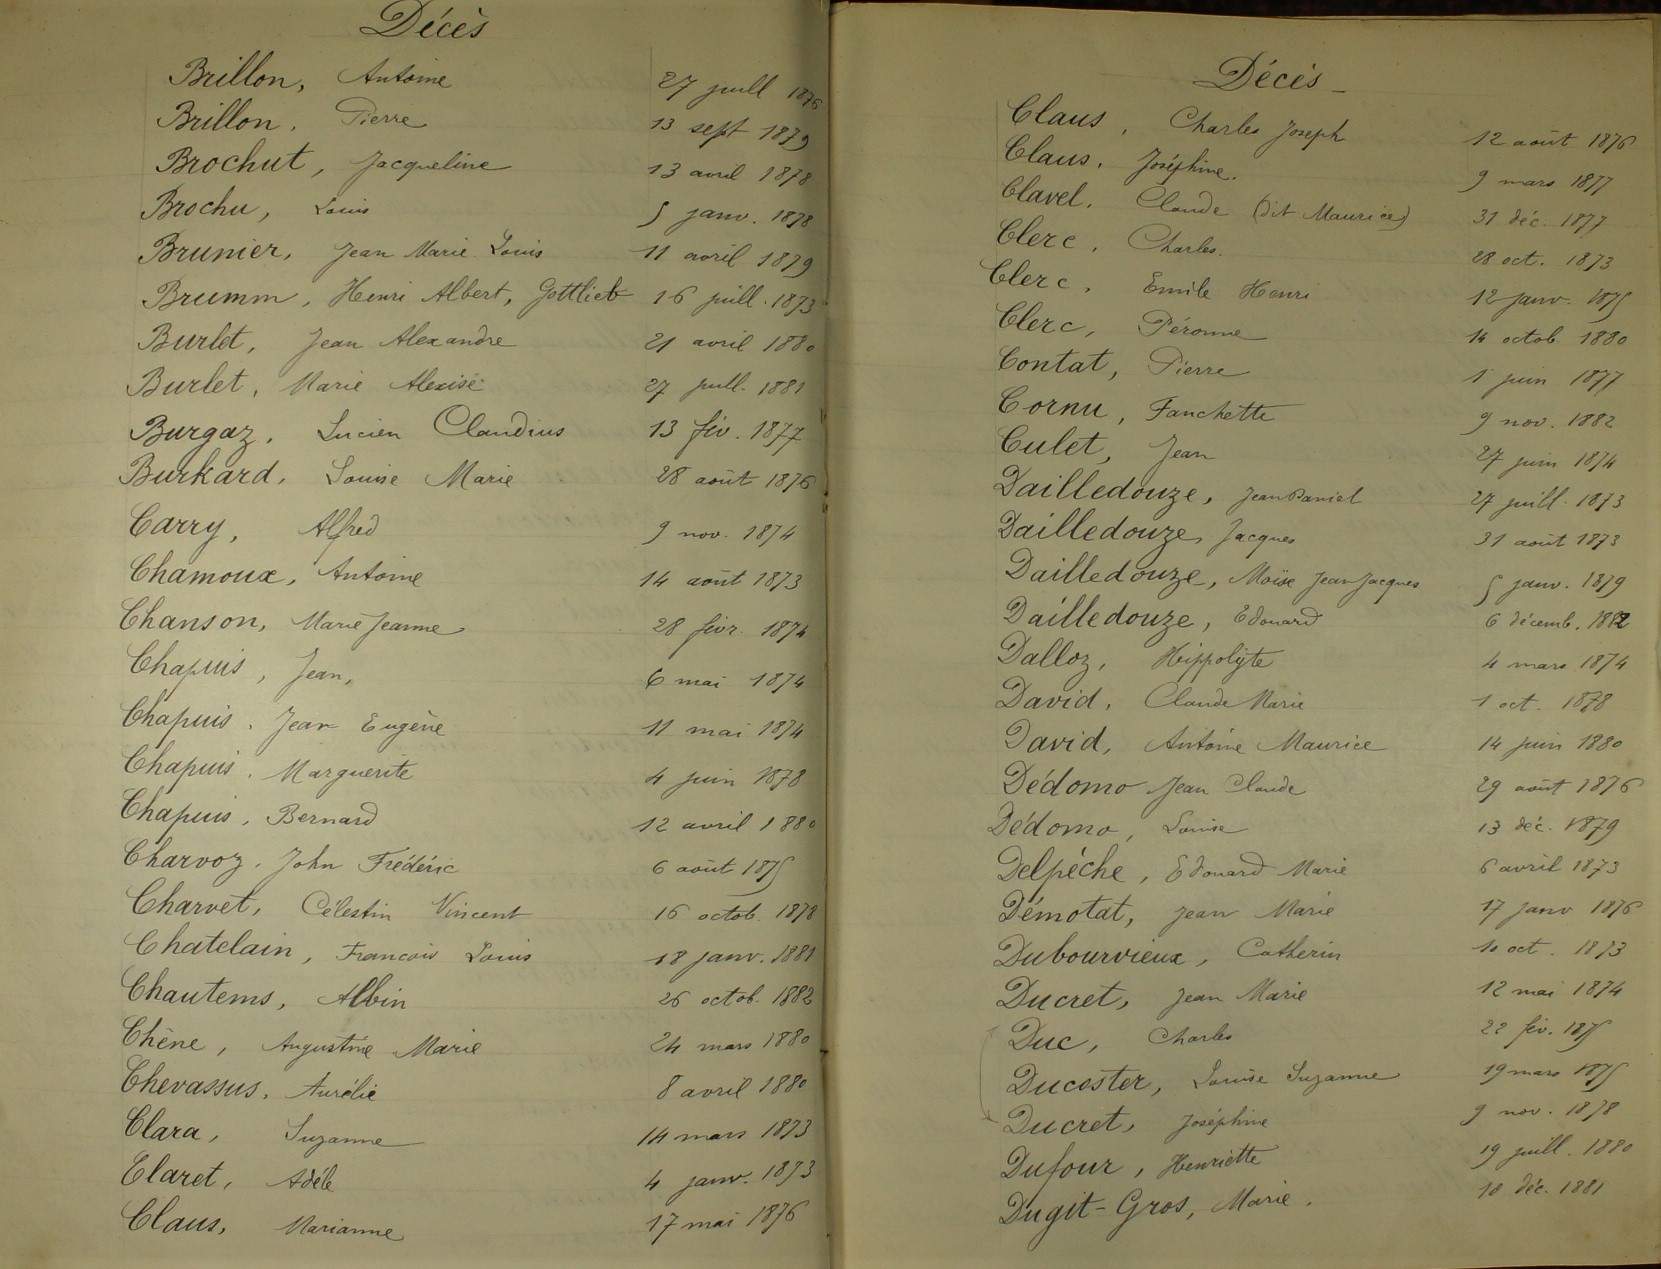 Décès
Brillon, Antoine 27 juill 1876
Brillon, Pierre 13 sept 1879
Brochut, Jacqueline 13 avril 1878
Brochu, Louis 5 janv. 1878
Brunier, Jean Marie Louis 11 avril 1879
Brumm, Henri Albert, Gottlieb 16 juill. 1873
Burlet, Jean Alexandre 21 avril 1880
Burlet, Marie Alexise 27 juill. 1881
Burgaz, Lucien Claudius 13 fév. 1877
Burkard, Louise Marie 28 août 1876
Carry, Alfred 9 nov. 1874
Chamoux, Antoine 14 août 1873
Chanson, Marie Jeanne 28 févr. 1874
Chapuis, Jean, 6 mai 1874
Chapuis, Jean Eugène 11 mai 1874
Chapuis, Marguerite 4 juin 1878
Chapuis, Bernard 12 avril 1880
Charvoz, John Frédéric 6 août 1875
Charvet, Célestin Vincent 16 octob. 1878
Chatelain, Francois Louis 18 janv. 1881
Chautems, Albin 26 octob. 1882
Chène, Augustine Marie 24 mars 1880
Chevassus, Aurélie 8 avril 1880
Clara, Suzanne 14 mars 1873
Claret, Adèle 4 janv. 1873
Claus, Marianne 17 mai 1876
Décès
Claus, Charles Joseph 12 août 1876
Claus, Joséphine. 9 mars 1877
Clavel, Claude (dit Maurice) 31 déc. 1877
Clerc, Charles. 28 oct. 1873
Clerc, Emile Henri 12 janv. 1875
Clerc, Péronne 14 octob. 1880
Contat, Pierre 1 juin 1877
Cornu, Fanchette 9 nov. 1882
Culet, Jean 27 juin 1874
Dailledouze, Jean Daniel 27 juill. 1873
Dailledouze, Jacques 31 août 1873
Dailledouze, Moïse Jean Jacques 5 janv. 1879
Dailledouze, Edouard 6 décemb. 1882
Dalloz, Hippolyte 4 mars 1874
David, Claude Marie 1 oct. 1878
David, Antoine Maurice 14 juin 1880
Dédomo Jean Claude 29 août 1876
Dédomo, Louise 13 déc. 1879
Delpèche, Edouard Marie 6 avril 1873
Démotat, Jean Marie 17 janv 1876
Dubourvieux, Catherin 10 oct. 1873
Ducret, Jean Marie 12 mai 1874
Duc, Charles 22 fév. 1875
Ducoster, Louise Suzanne 19 mars 1875
Ducret, Joséphine 9 nov. 1878
Dufour, Henriette 19 juill. 1880
Dugit-Gros, Marie. 10 déc. 1881